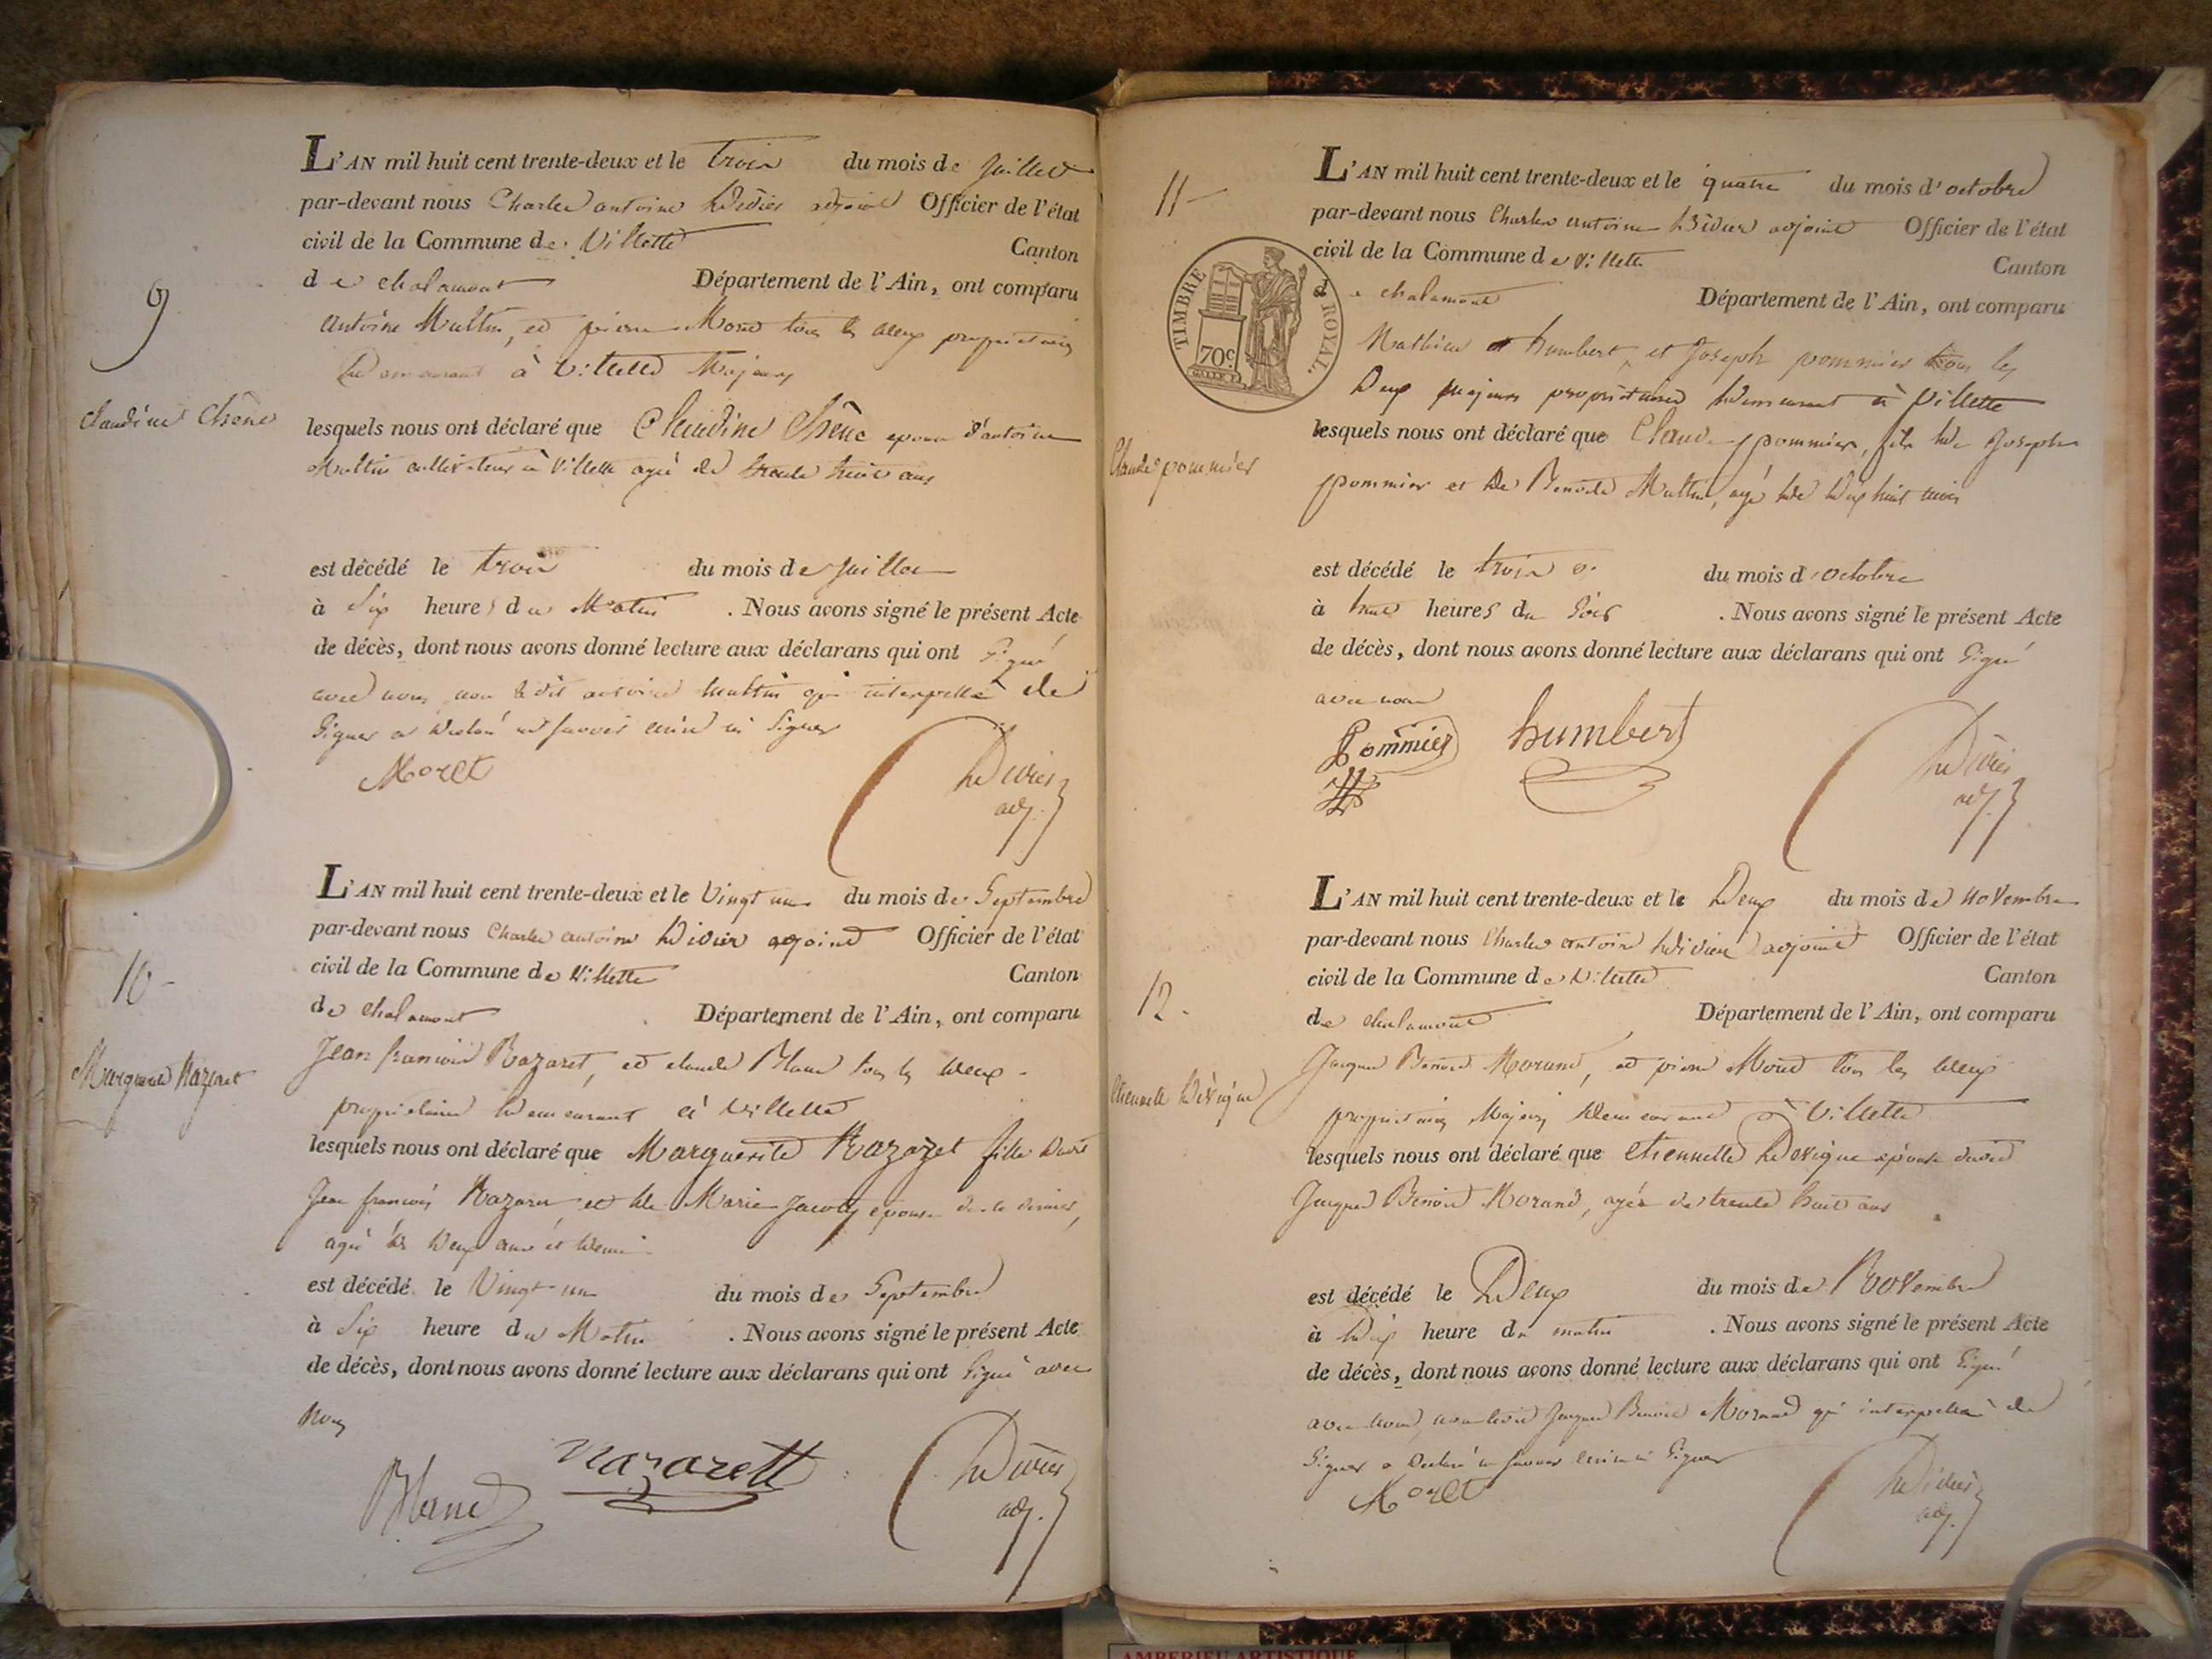 9
Claudine Chêne
L'AN mil huit cent trente-deux et le trois du mois de Juillet
par-devant nous Charles antoine Didier adjoint Officier de l'état
civil de la Commune de Villette Canton
de chalamont Département de l'Ain, ont comparu
Antoine Multin, et pierre Moret tous les deux propriétaires
Demeurant à Villette Majeurs
lesquels nous ont déclaré que Claudine Chêne epouse d'antoine
Multin cultivateur à Villette agée de trente huit ans
est décédé le trois du mois de Juillet
à Six heures du Matin . Nous avons signé le présent Acte
de décès, dont nous avons donné lecture aux déclarans qui ont Signé
avec nous non ledit antoine Multin qui interpellé de
Signer a Declaré ne savoir écrire ni Signer
Moret
Didier
adj.
10-
Marguerite Nazaret
L'AN mil huit cent trente-deux et le Vingt un du mois de Septembre
par-devant nous Charles antoine Didier adjoint Officier de l'état
civil de la Commune de Villette Canton
de chalamont Département de l'Ain, ont comparu
Jean francois Nazaret, et claude Blanc tous les deux
propriétaires demeurant à Villette
lesquels nous ont déclaré que Marguerite Nazaret fille dudit
Jean francois Nazaret et de Marie Jacoty epouse de ce dernier,
agée de deux ans et demi
est décédé le Vingt-un du mois de Septembre
à Six heure du Matin . Nous avons signé le présent Acte
de décès, dont nous avons donné lecture aux déclarans qui ont Signé avec
Nous
Blanc
nazarett
Didier
adj.
11-
TIMBRE ROYAL.
70c.
Claude pommier
L'AN mil huit cent trente-deux et le quatre du mois d'octobre
par-devant nous Charles antoine Didier adjoint Officier de l'état
civil de la Commune de Villette Canton
de chalamont Département de l'Ain, ont comparu
Mathieu humbert, et Joseph pommier tous les
Deux majeurs propriétaires Demeurant à Villette
lesquels nous ont déclaré que Claude pommier, fils de Joseph
pommier et de Benoite Multin, agé de dix huit mois
est décédé le trois du mois d'octobre
à heures du Soir . Nous avons signé le présent Acte
de décès, dont nous avons donné lecture aux déclarans qui ont Signé
avec nous
Pommier
humbert
Didier
adj.
12.
etiennette Devigne
L'AN mil huit cent trente-deux et le Deux du mois de novembre
par-devant nous Charles antoine Didier adjoint Officier de l'état
civil de la Commune de Villette Canton
de chalamont Département de l'Ain, ont comparu
Jacques Benoit Morand, et pierre Moret tous les deux
propriétaires Majeurs demeurant à Villette
lesquels nous ont déclaré que etiennette Devigne épouse dudit
Jacques Benoit Morand, agée de trente huit ans
est décédé le Deux du mois de Novembre
à Dix heure du matin . Nous avons signé le présent Acte
de décès, dont nous avons donné lecture aux déclarans qui ont Signé
avec nous, non ledit Jacques Benoit Morand qui interpellé de
Signer a Declaré ne savoir écrire ni Signer
Moret
Didier
adj.
AMBERIEU ARTISTIQUE